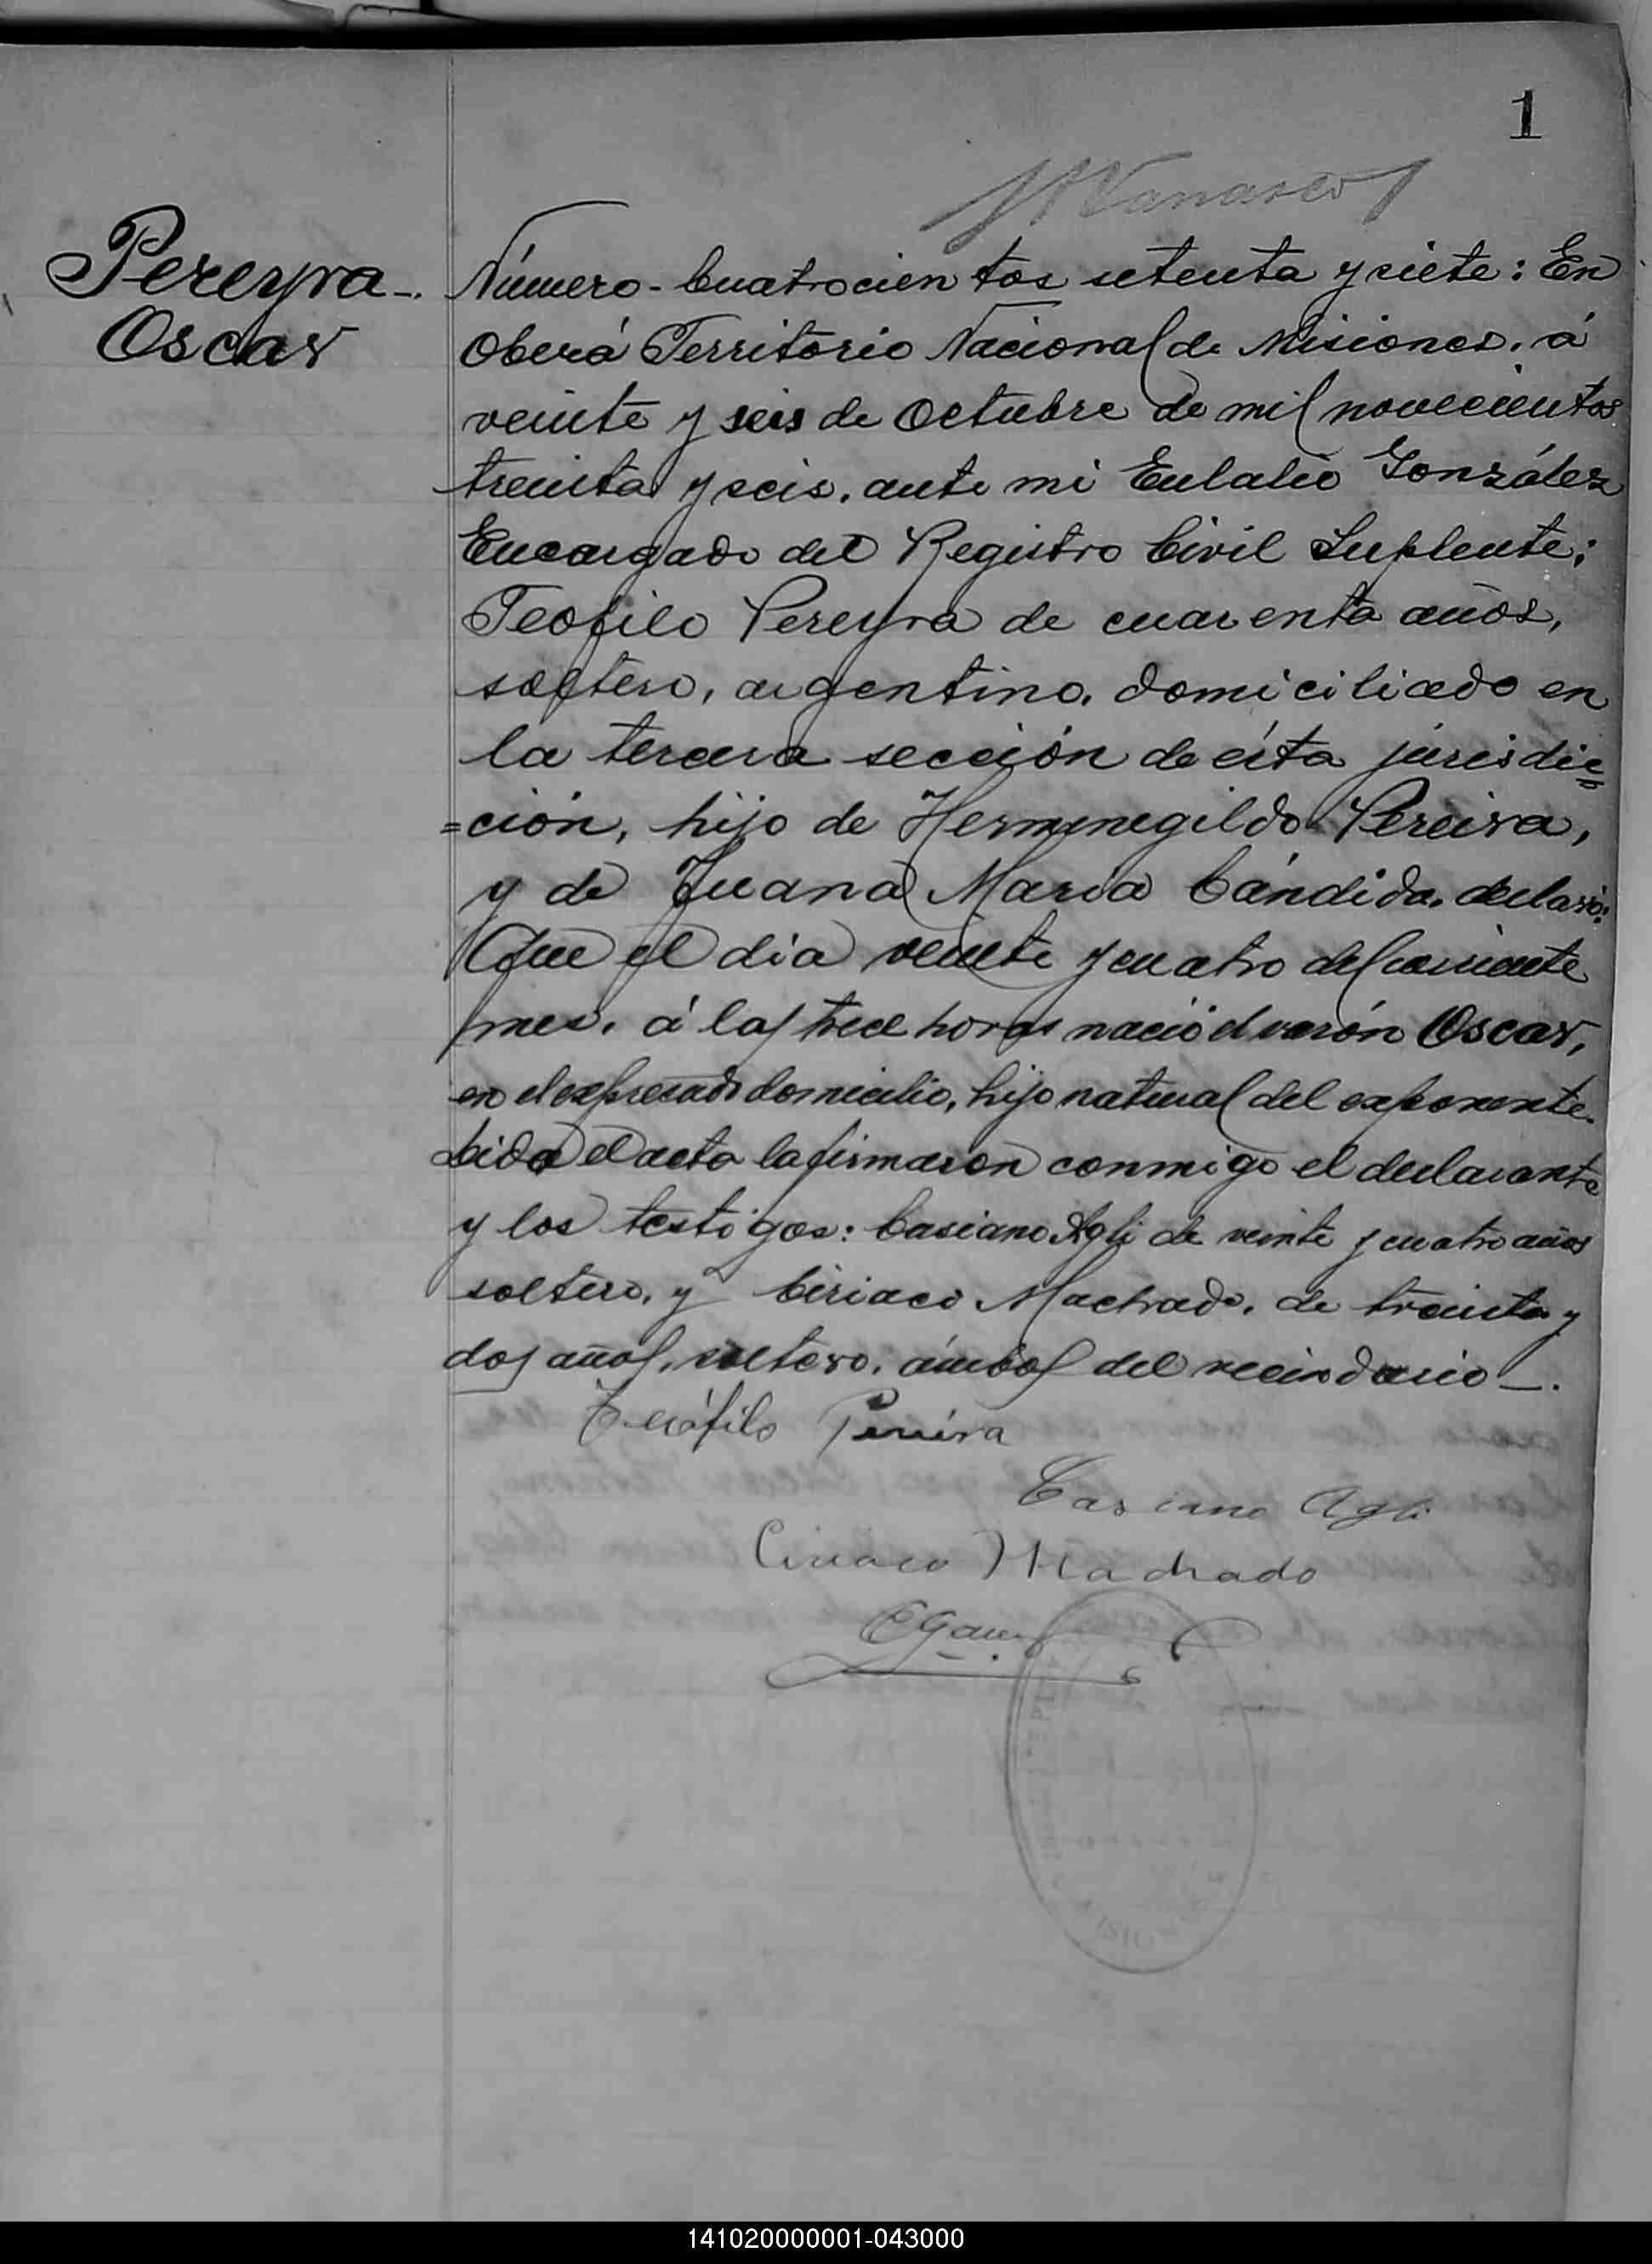 1
Pereyra-.
Oscar
Número-Cuatrocientos setenta y siete: En
Oberá Territorio Nacional de Misiones. á
veinte y seis de Octubre de mil novecientos
treinta y seis. ante mi Eulalio González
Encargado del Registro Civil Suplente:
Teofilo Pereyra de cuarenta años,
soltero, argentino. domiciliado en
la tercera sección de ésta jurisdic=
=ción, hijo de Hermenegildo Pereira,
y de Juana Maria Cándida. declaró:
Que el dia veinte y cuatro del corriente
mes. á las trece horas nació el varón Oscar,
en el expresado domicilio, hijo natural del exponente.
Leida el acta la firmaron conmigo el declarante
y los testigos: Casiano Agli de veinte y cuatro años
soltero, y Ciriaco Machado. de treinta y
dos años, soltero. ámbos del vecindario-.
Teófilo Pereira
Casiano Agli
Ciriaco Machado
141020000001-043000